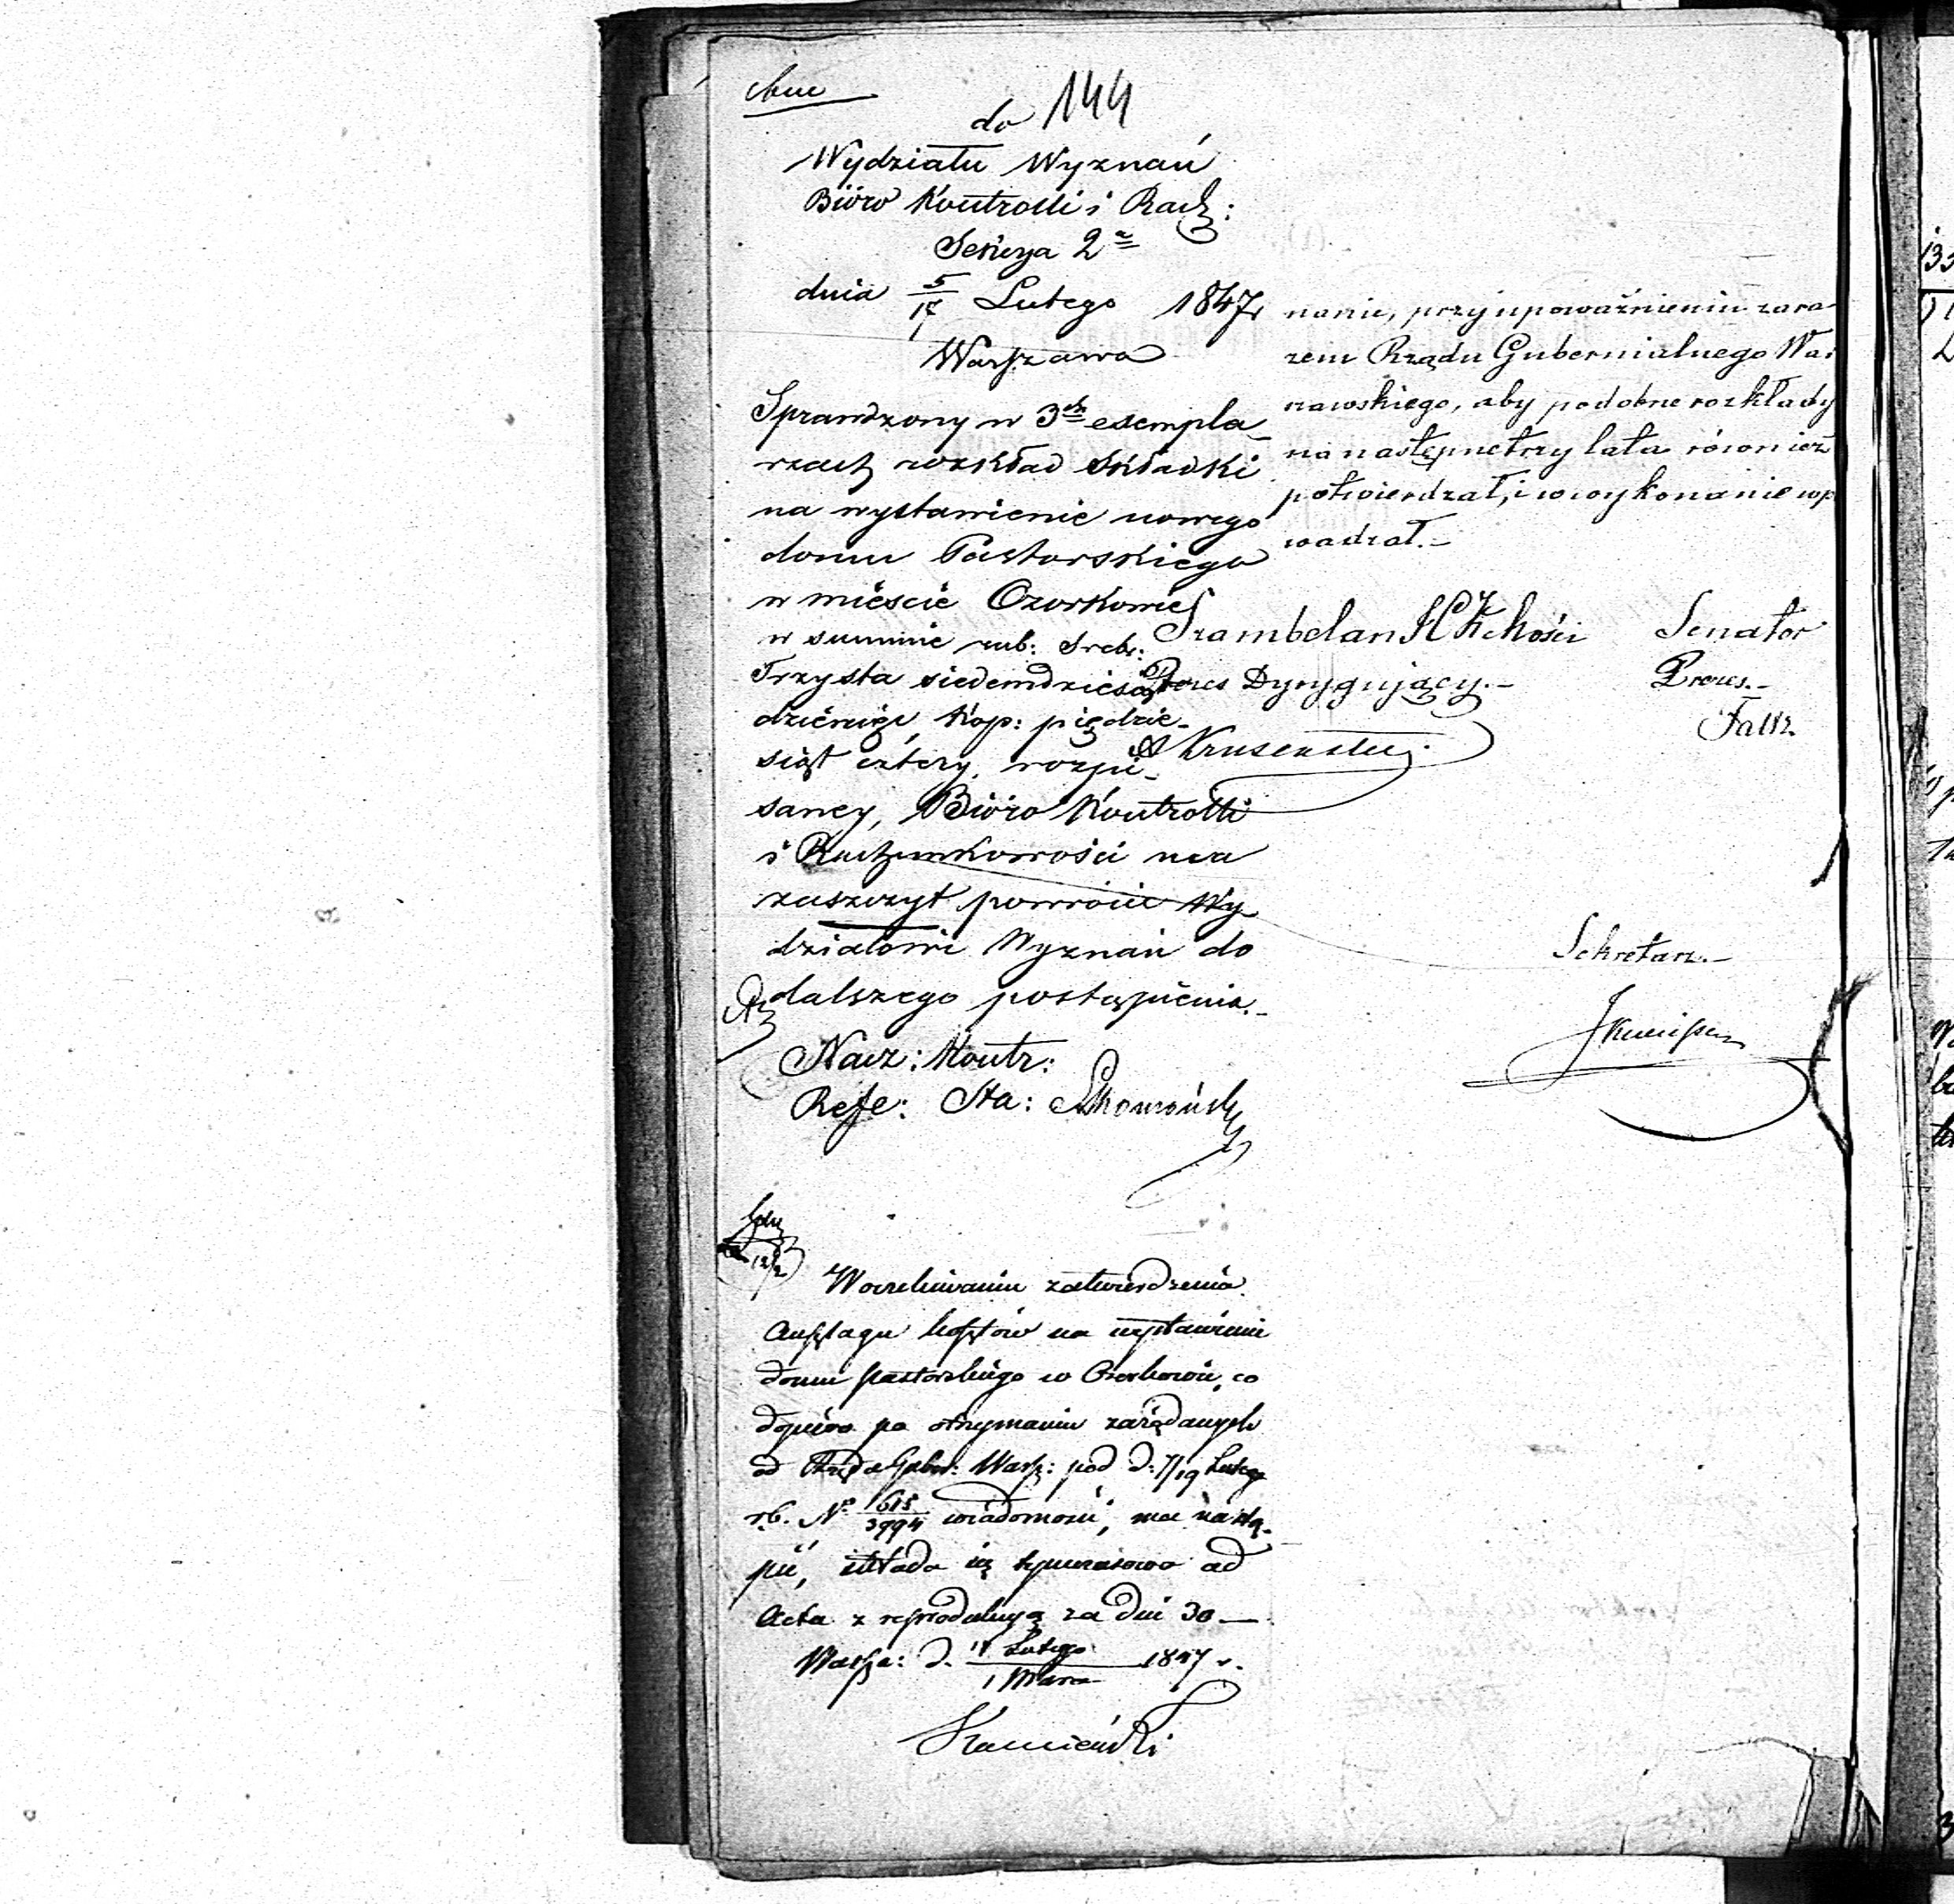 do 144
Wydziału Wyznań
Bióro Kontrolli i Rach:
Sekcya 2a
dnia 5/17 Lutego 1847r
Warszawa
Sprawdzony w 3ch exempla-
rzach rozkład składki
na wystawienie nowego
domu Pastorskiego
w mieście Ozorkowie
w summie rub: Sreb:
Trzysta siedemdziesiąt
dziewięć, kop: pięćdzie-
siąt cztery, rozpi-
saney, Bióro Kontrolli
i Rachunkowości ma
zaszczyt powrócić Wy-
działowi Wyznań do
dalszego postąpienia.-
Nacz: Kontr:
Refe: Sta:
12/2
W oczekiwaniu zatwierdzenia
Anszlagu kosztów na wystawienie
domu pastorskiego w Ozorkowie, co
dopiero po otrzymaniu zażądanych
od Rządu Gober: Warsz: pod d: 7/19 Lutego
r.b. No 615/3994 wiadomości, ma nastą-
pić, składa się tymczasowo ad
Acta z reprodukcyą za dni 30 —
Warsza: d. 17 Lutego / 1 Marca 1847 r.
Kamieński
nanie, przy upoważnieniu zara-
zem Rządu Gubernialnego War
szawskiego, aby podobne rozkłady
na następne trzy lata również
potwierdzał, i w wykonanie wpr
wadzał.-
Szambelan JCKMości
Prezes Dyrygujący.-
Krusenstern
Senator
Prezes.-
Sekretarz.-